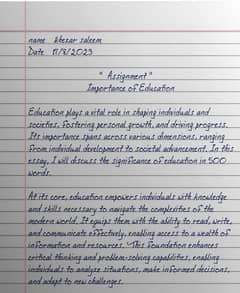 name khesar saleem
Date 17/8/2023
" Assignment "
Importance of Education
Education plays a vital role in shaping individuals and
societies, fostering personal growth, and driving progress.
Its importance spans across various dimensions, ranging
from individual development to societal advancement. In this
essay, I will discuss the significance of education in 500
words.
At its core, education empowers individuals with knowledge
and skills necessary to navigate the complexities of the
modern world. It equips them with the ability to read, write,
and communicate effectively, enabling access to a wealth of
information and resources. This foundation enhances
critical thinking and problem-solving capabilities, enabling
individuals to analyze situations, make informed decisions,
and adapt to new challenges.